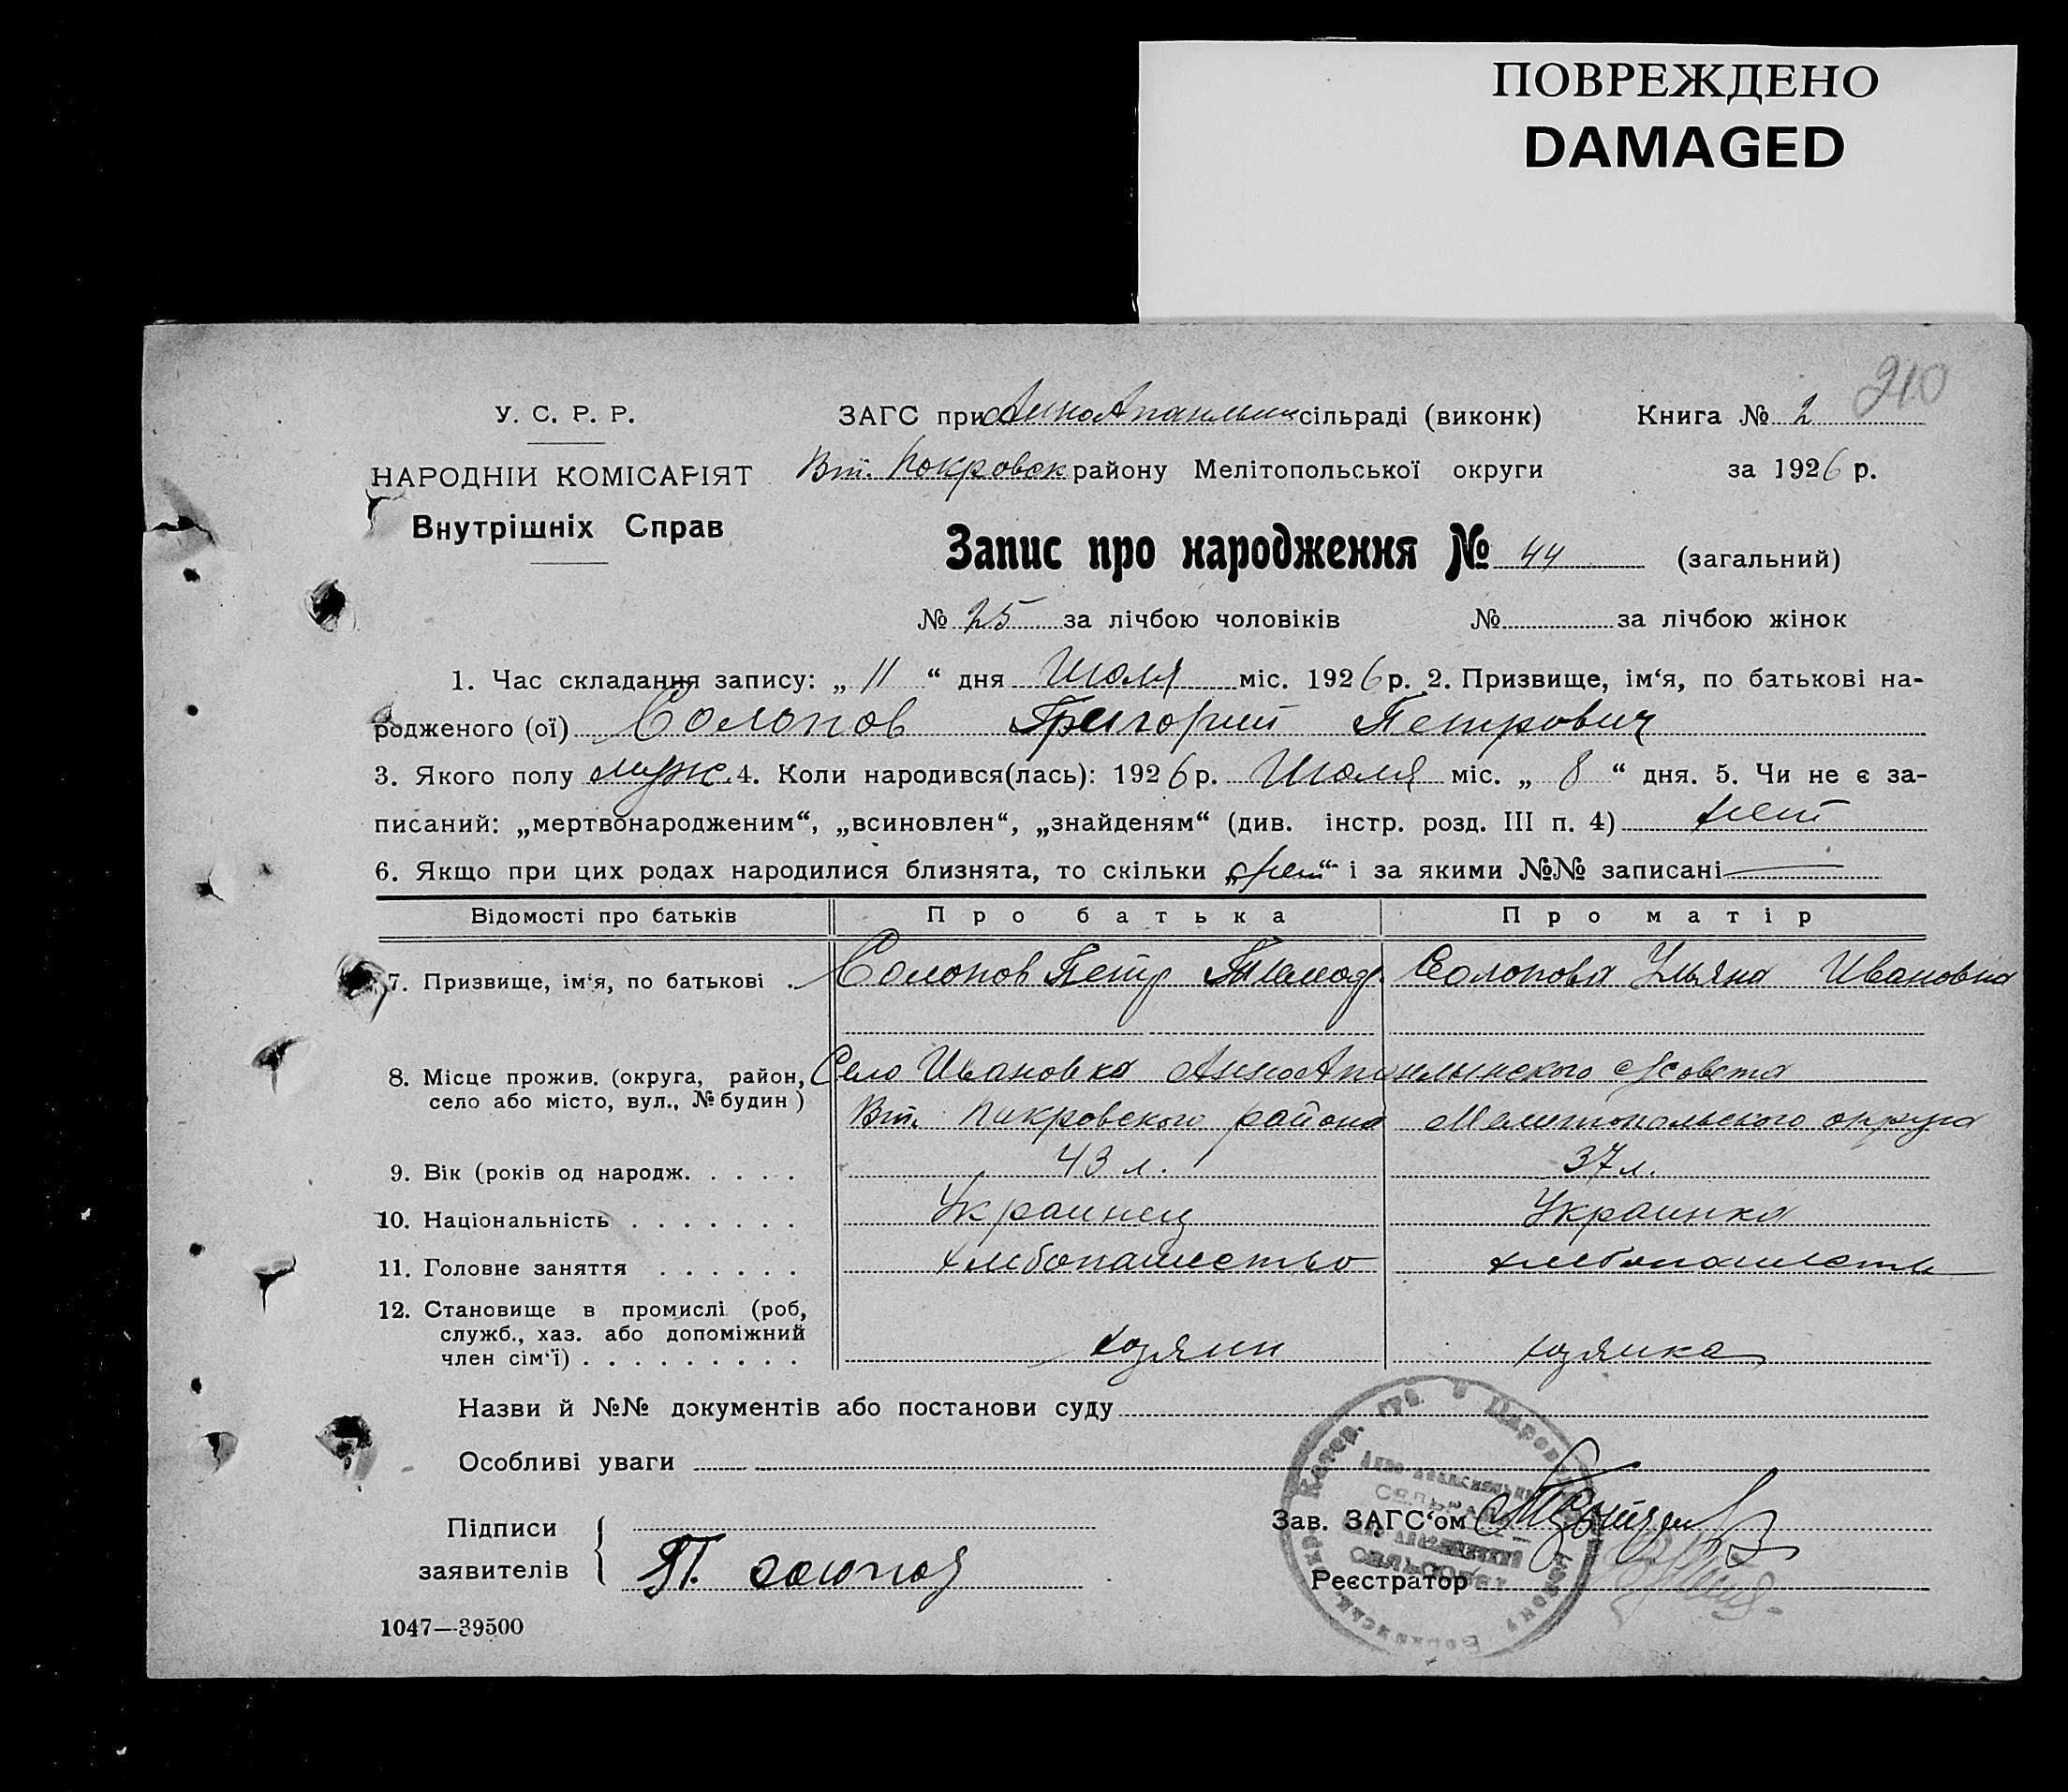 ПОВРЕЖДЕНО
DAMAGED
210
У. С. Р. Р.
НАРОДНІЙ КОМІСАРІЯТ
Внутрішніх Справ
ЗАГС при сільраді (виконк)
Книга № 2
Вт. Покровск району Мелітопольської округи
за 1926 р.
Запис про народження № 44 (загальний)
№ 25 за лічбою чоловіків № за лічбою жінок
1. Час складання запису: „ 11 “ дня Июля міс. 1926 р. 2. Призвище, ім‘я, по батькові на-
родженого (ої) Солопов Григорий Петрович
3. Якого полу муж. 4. Коли народився(лась): 1926 р. Июля міс. „ 8 “ дня. 5. Чи не є за-
писаний: „мертвонародженим“, „всиновлен“, „знайденям“ (див. інстр. розд. III п. 4) нет
6. Якщо при цих родах народилися близнята, то скільки „нет“ і за якими №№ записані —
Відомості про батьків Про батька Про матір
7. Призвище, ім‘я, по батькові . Солопов Петр Солопова Ульяна Ивановна
8. Місце прожив. (округа, район, село або місто, вул., № будин) Село Ивановка с/совета
Вт. Покровского района Мелитопольского округа
9. Вік (років од народж. . . . . 43 л. 37 л.
10. Національність . . . . . . . Украинец Украинка
11. Головне заняття . . . . . . хлебопашество хлебопашеств
12. Становище в промислі (роб, служб., хаз. або допоміжний член сім‘ї) . . . . . . . . . хозяин хозяика
Назви й №№ документів або постанови суду
Особливі уваги
Підписи
заявителів
П. солопов
Зав. ЗАГС‘ом
Реєстратор
СЕЛЬСОВЕТ
1047—39500